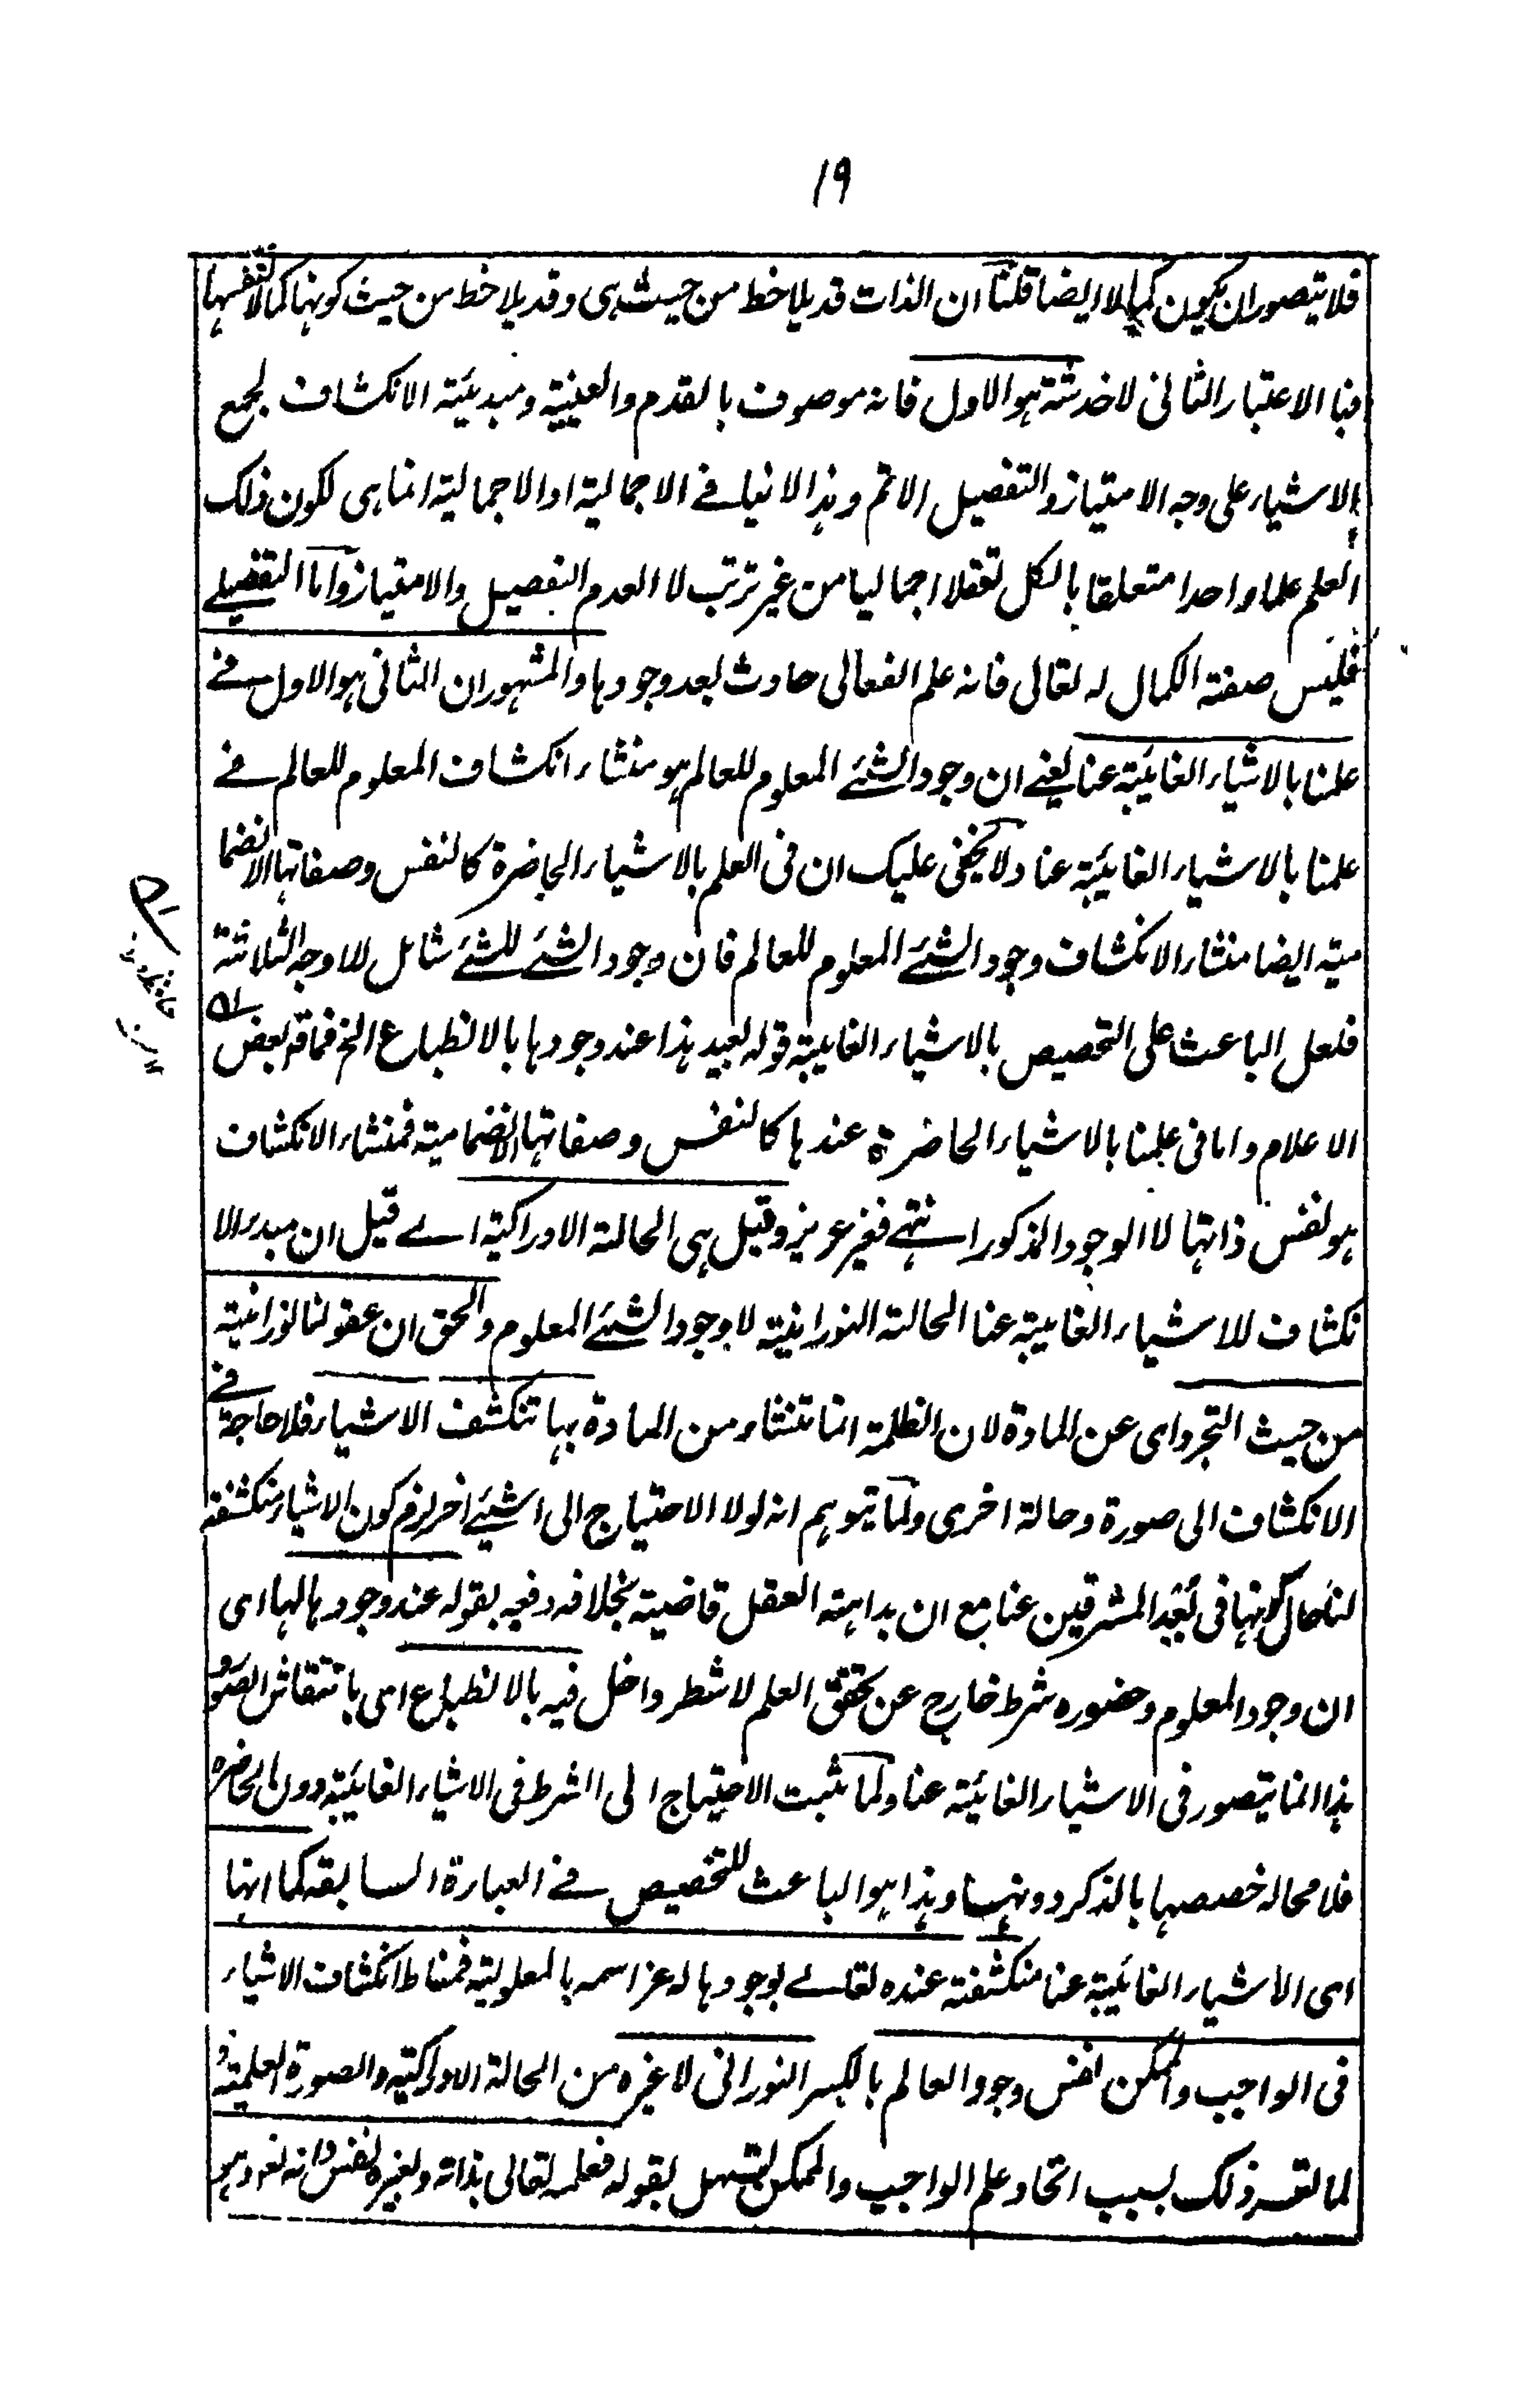 ١٩
فلا يتصور ان يكون كمالا ايضا قلنا ان الذات قد يلاحظ من حيث هى و قد يلاحظ من حيث كونها كمالا لنفسها
فبا الاعتبار الثانى لا خدشة هو الاول فانه موصوف بالقدم والعينية ومبدئية الانكشاف لجمع
الاشياء على وجه الامتياز والتفصيل الاتم وهذا لا ينافى الاجمالية اذ الاجمالية انما هى لكون ذلك
العلم علما واحدا متعلقا بالكل تعقلا اجماليا من غير ترتب لا العدم التفصيل والامتياز واما التفصيلى
فليس صفة الكمال له تعالى فانه علم انفعالى حادث بعد وجودها والمشهور ان الثانى هو الاول فى
علمنا بالاشياء الغائبة عنا يعنى ان وجود الشئ المعلوم للعالم هو منشاء انكشاف المعلوم للعالم فى
علمنا بالاشياء الغائبة عنا ولا يخفى عليك ان فى العلم بالاشياء الحاضرة كالنفس وصفاتها الانضما
مية ايضا منشاء الانكشاف وجود الشئ المعلوم للعالم فان وجود الشئ للشئ شامل للاوجه الثلاثة
فلعل الباعث على التخصيص بالاشياء الغايبة قوله بعيد هذا عند وجودها بالانطباع الخ فما قه بعض
الاعلام واما فى علمنا بالاشياء الحاضرة عندها كالنفس وصفاتها الانضمامية فمنشاء الانكشاف
هو نفس ذاتها لا الوجود المذكور انتهى فغير عزيز وقيل هى الحالة الادراكية اى قيل ان مبدء الا
نكشاف للاشياء الغايبة عنا الحالة النورانية لا وجود الشئ المعلوم والحق ان عقولنا نورانية
من حيث التجرد اى عن المادة لان الظلمة انما تنشاء من المادة بها تنكشف الاشياء فلا حاجة فى
الانكشاف الى صورة وحالة اخرى ولما يتوهم انه لو لا الاحتياج الى اشئ اخر لزم كون الاشياء منكشفة
لنا حال كونها فى بعد المشرقين عنا مع ان بداهة العقل قاضية بخلافه دفعه بقوله عند وجودها لها اى
ان وجود المعلوم وحضوره شرط خارج عن تحقق العلم لا شطر داخل فيه بالانطباع اى بانتقاش الصور و
هذا انما يتصور فى الاشياء الغائبة عنا ولما ثبت الاحتياج الى الشرط فى الاشياء الغائبة دون الحاضرة
فلا محالة خصصها بالذكر دونها وهذا هو الباعث للتخصيص فى العبارة السابقة كما انها
اى الاشياء الغائبة عنا منكشفة عنده تعالى بوجودها له عز اسمه بالمعلولية فمناط انكشاف الاشياء
فى الواجب والممكن نفس وجود العالم بالكسر النورانى لا غيره من الحالة الادراكية والصورة العلمية و
لما تقرر ذلك بسبب اتحاد علم الواجب والممكن بقوله فعلمه تعالى بذاته ولغيره نفس ذاته